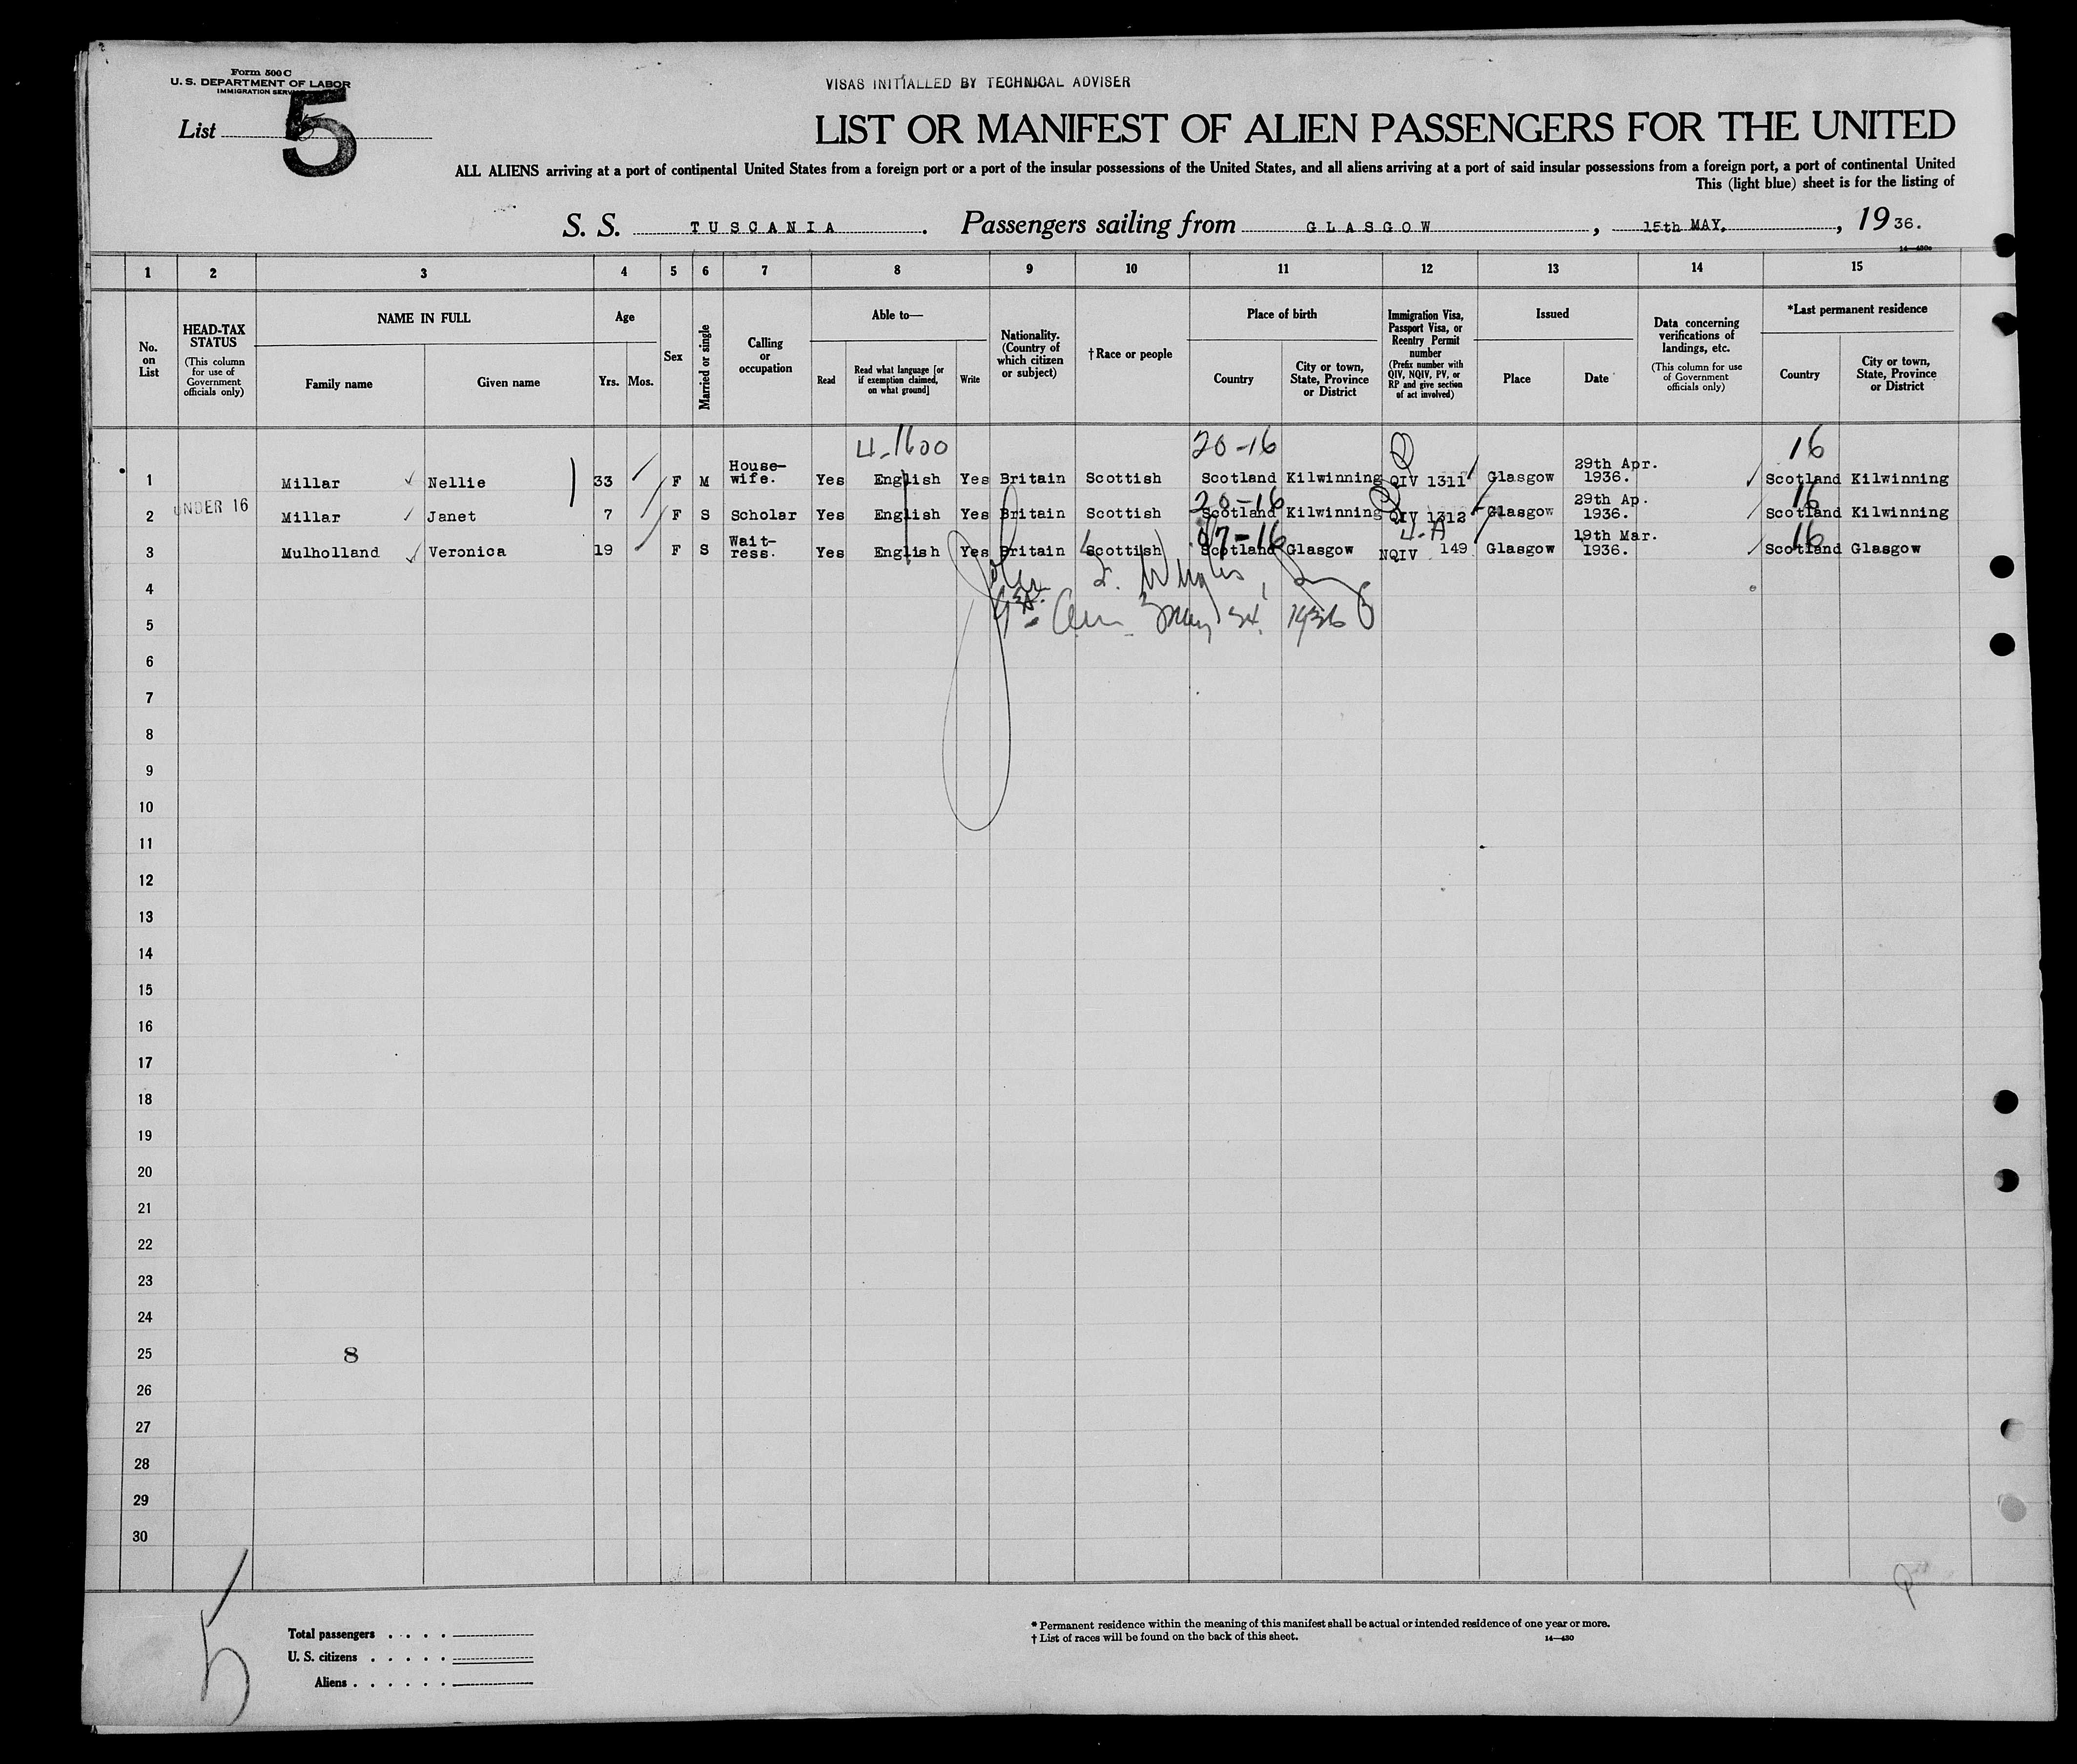 Form 500 C
U. S. DEPARTMENT OF LABOR
IMMIGRATION
VISAS INITIALLED BY TECHNICAL ADVISER
List 5
LIST OR MANIFEST OF ALIEN PASSENGERS FOR THE UNITED
ALL ALIENS arriving at a port of continental United States from a foreign port or a port of the insular possessions of the United States, and all aliens arriving at a port of said insular possessions from a foreign port, a port of continental United
This (light blue) sheet is for the listing of
S. S. TUSCANIA . Passengers sailing from GLASGOW , 15th MAY. , 19 36.
1 2 3 4 5 6 7 8 9 10 11 12 13 14 15
No. on List
HEAD-TAX STATUS (This column for use of Government officials only)
NAME IN FULL
Family name Given name
Age
Yrs. Mos.
Sex
Married or single
Calling or occupation
Able to—
Read Read what language [or if exemption claimed, on what ground] Write
Nationality. (Country of which citizen or subject)
†Race or people
Place of birth
Country City or town, State, Province or District
Immigration Visa, Passport Visa, or Reentry Permit number (Prefix number with QIV, NQIV, PV, or RP and give section of act involved)
Issued
Place Date
Data concerning verifications of landings, etc. (This column for use of Government officials only)
*Last permanent residence
Country City or town, State, Province or District
4-1600 20-16 Q 16
1 Millar Nellie 33 F M House-wife. Yes English Yes Britain Scottish Scotland Kilwinning QIV 1311 Glasgow 29th Apr. 1936. Scotland Kilwinning
UNDER 16 20-16 Q 16
2 Millar Janet 7 F S Scholar Yes English Yes Britain Scottish Scotland Kilwinning QIV 1312 Glasgow 29th Ap. 1936. Scotland Kilwinning
17-16 4-A 16
3 Mulholland Veronica 19 F S Wait-ress. Yes English Yes Britain Scottish Scotland Glasgow NQIV 149 Glasgow 19th Mar. 1936. Scotland Glasgow
4
5 May 24, 1936
6
7
8
9
10
11
12
13
14
15
16
17
18
19
20
21
22
23
24
25 8
26
27
28
29
30
5
Total passengers . . . .
U. S. citizens . . . . .
Aliens . . . . . .
* Permanent residence within the meaning of this manifest shall be actual or intended residence of one year or more.
† List of races will be found on the back of this sheet. 14—430